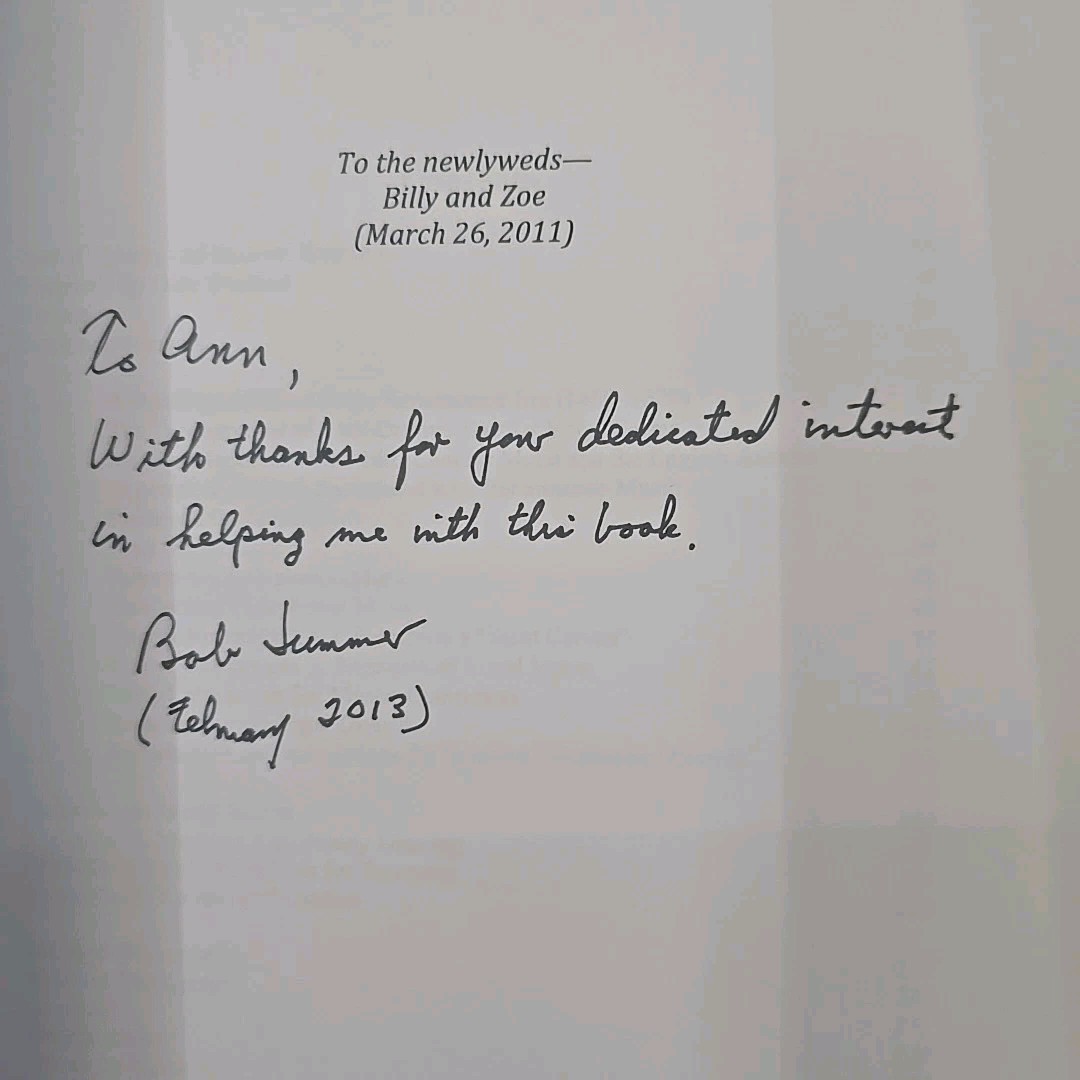 To the newlyweds—
Billy and Zoe
(March 26, 2011)
To Ann,
With thanks for your dedicated interest
in helping me with this book.
Bob Summer
(February 2013)